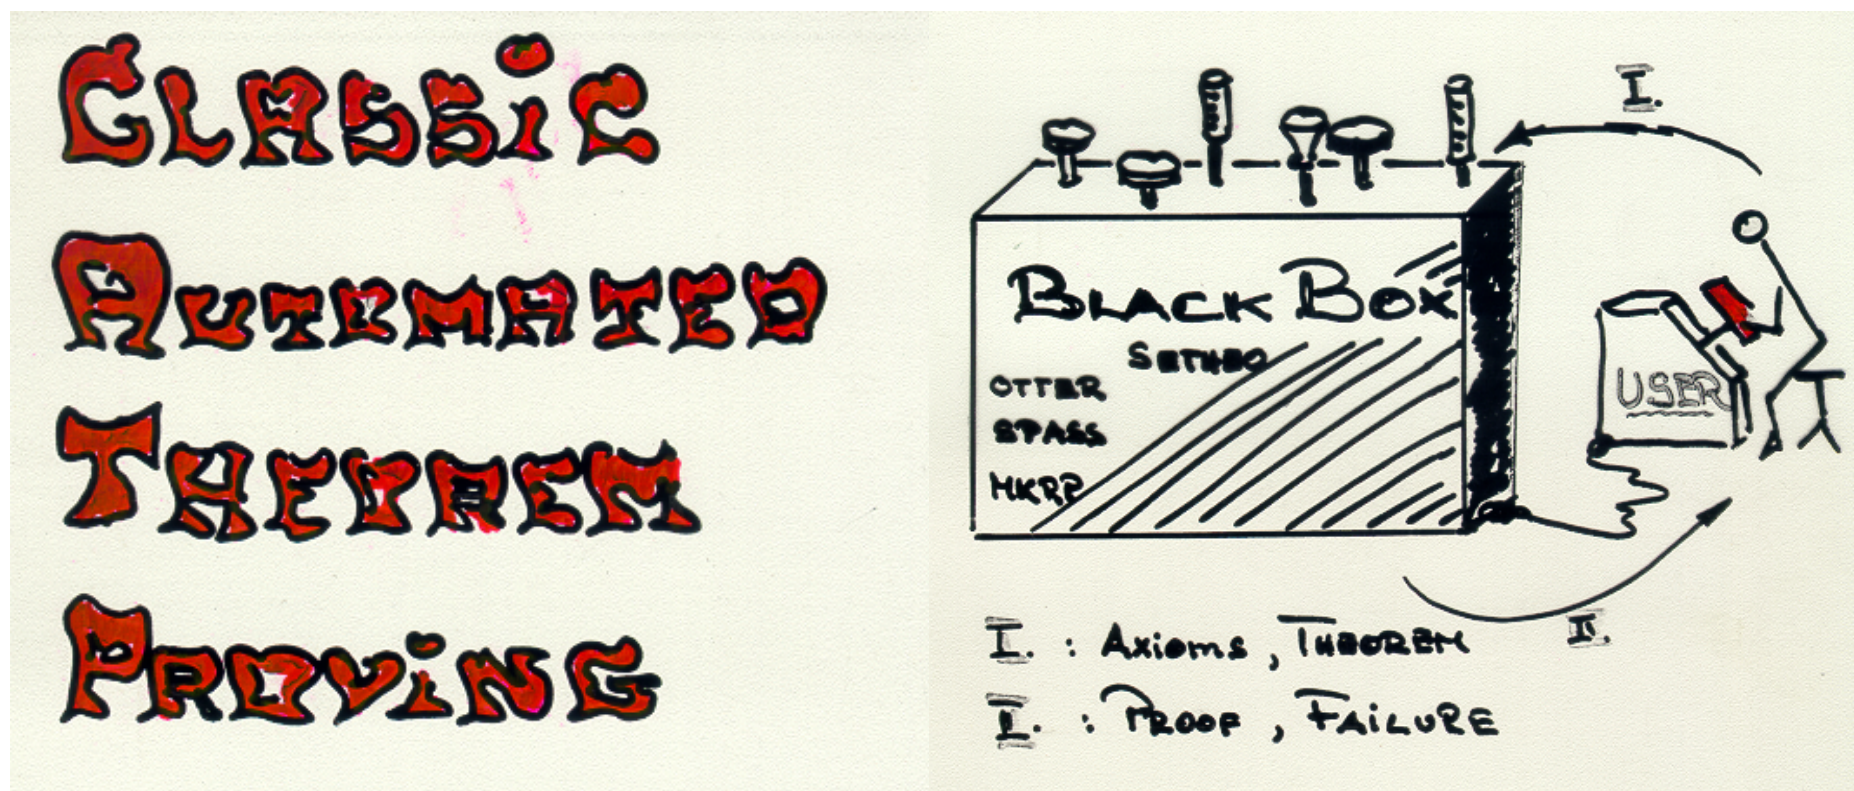 Classic
Automated
Theorem
Proving
I.
Black Box
SETHEO
OTTER
SPASS
MKRP
USER
II.
I. : Axioms, Theorem
II. : Proof, Failure